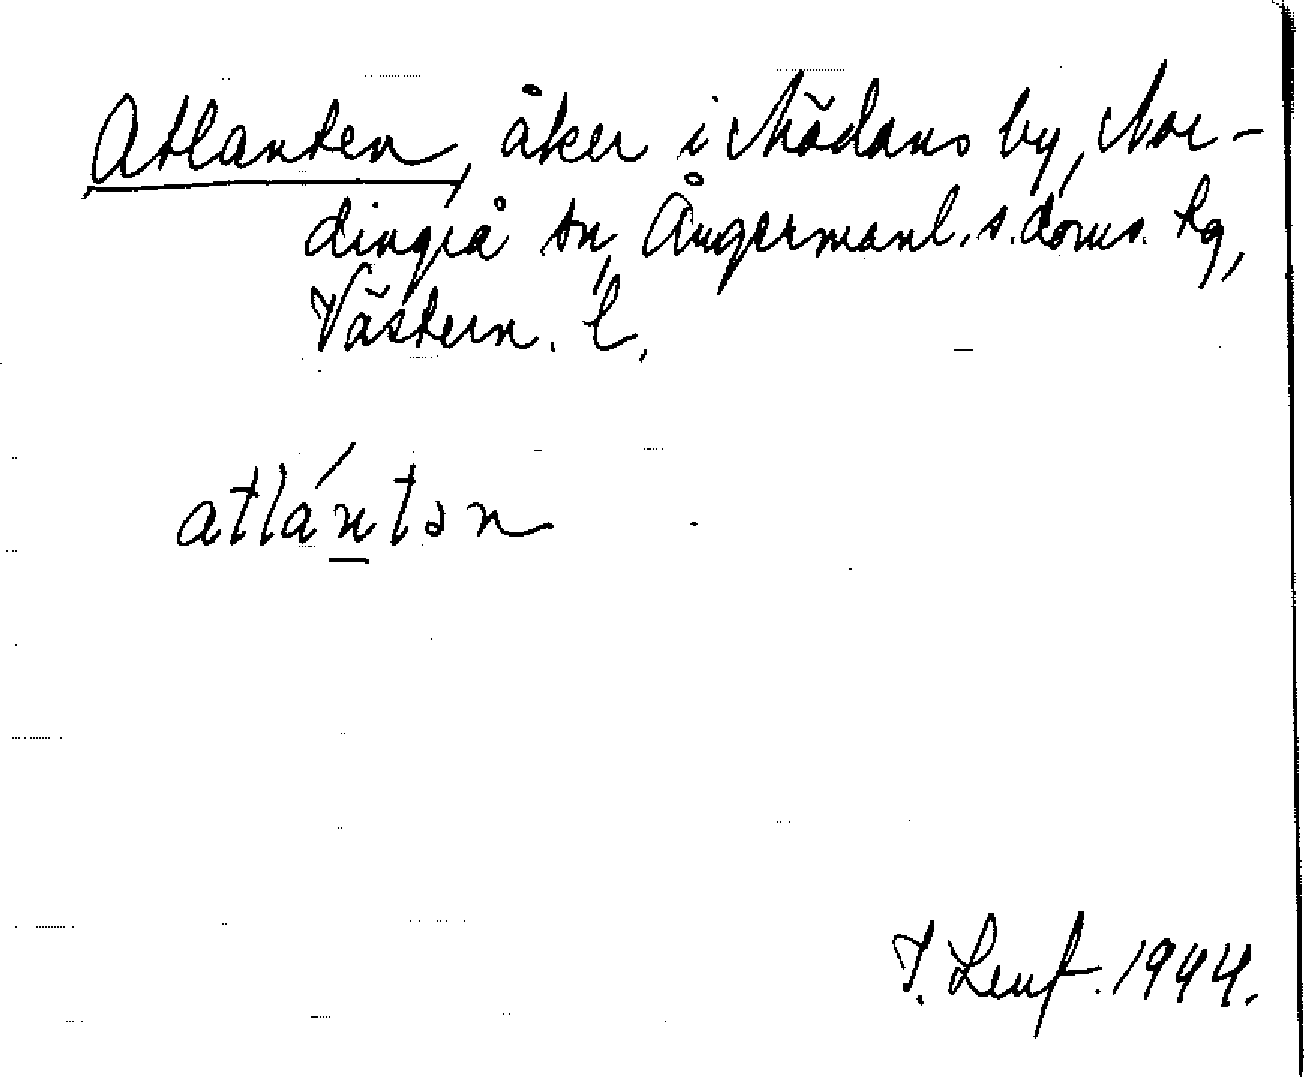 Atlanten, åker i Mädans by, Nor-
dingrå sn, Ångermanl. s. doms. tg,
Västern. l.
atlántən
T. Leuf. 1944.